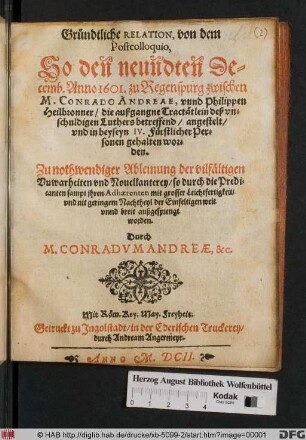 Gründtliche RELATION, von dem
Postcolloquio,
So den neundten De-
cemb. Anno 1601. zu Regenspurg zwischen
M. CONRADO ANDREAE, vnnd Philippen
Heilbronner / die außgangne Tractätlein deß vn-
schuldigen Luthers betreffend / angestelt /
vnd in beyseyn IV. Fürstlicher Per-
sonen gehalten wor-
den.
Zu nothwendiger Ableinung der vilfältigen
Vnwarheiten vnd Nouellanterey / so durch die Predi-
canten sampt jhren Adhærenten mit grosser Leichtfertigkeit /
vnd nit geringem Nachtheyl der Einfeltigen weit
vnnd breit außgesprengt
worden.
Durch
M. CONRADVM ANDREÆ, &c.
Mit Röm. Key. May. Freyheit.
Getruckt zu Ingolstadt / in der Ederischen Truckerey /
durch Andream Angermeyr.
ANNO M. DCII.
Herzog August Bibliothek Wolfenbüttel
Kodak
© HAB http://diglib.hab.de/drucke/xb-5099-2/start.htm?image=00001
DFG